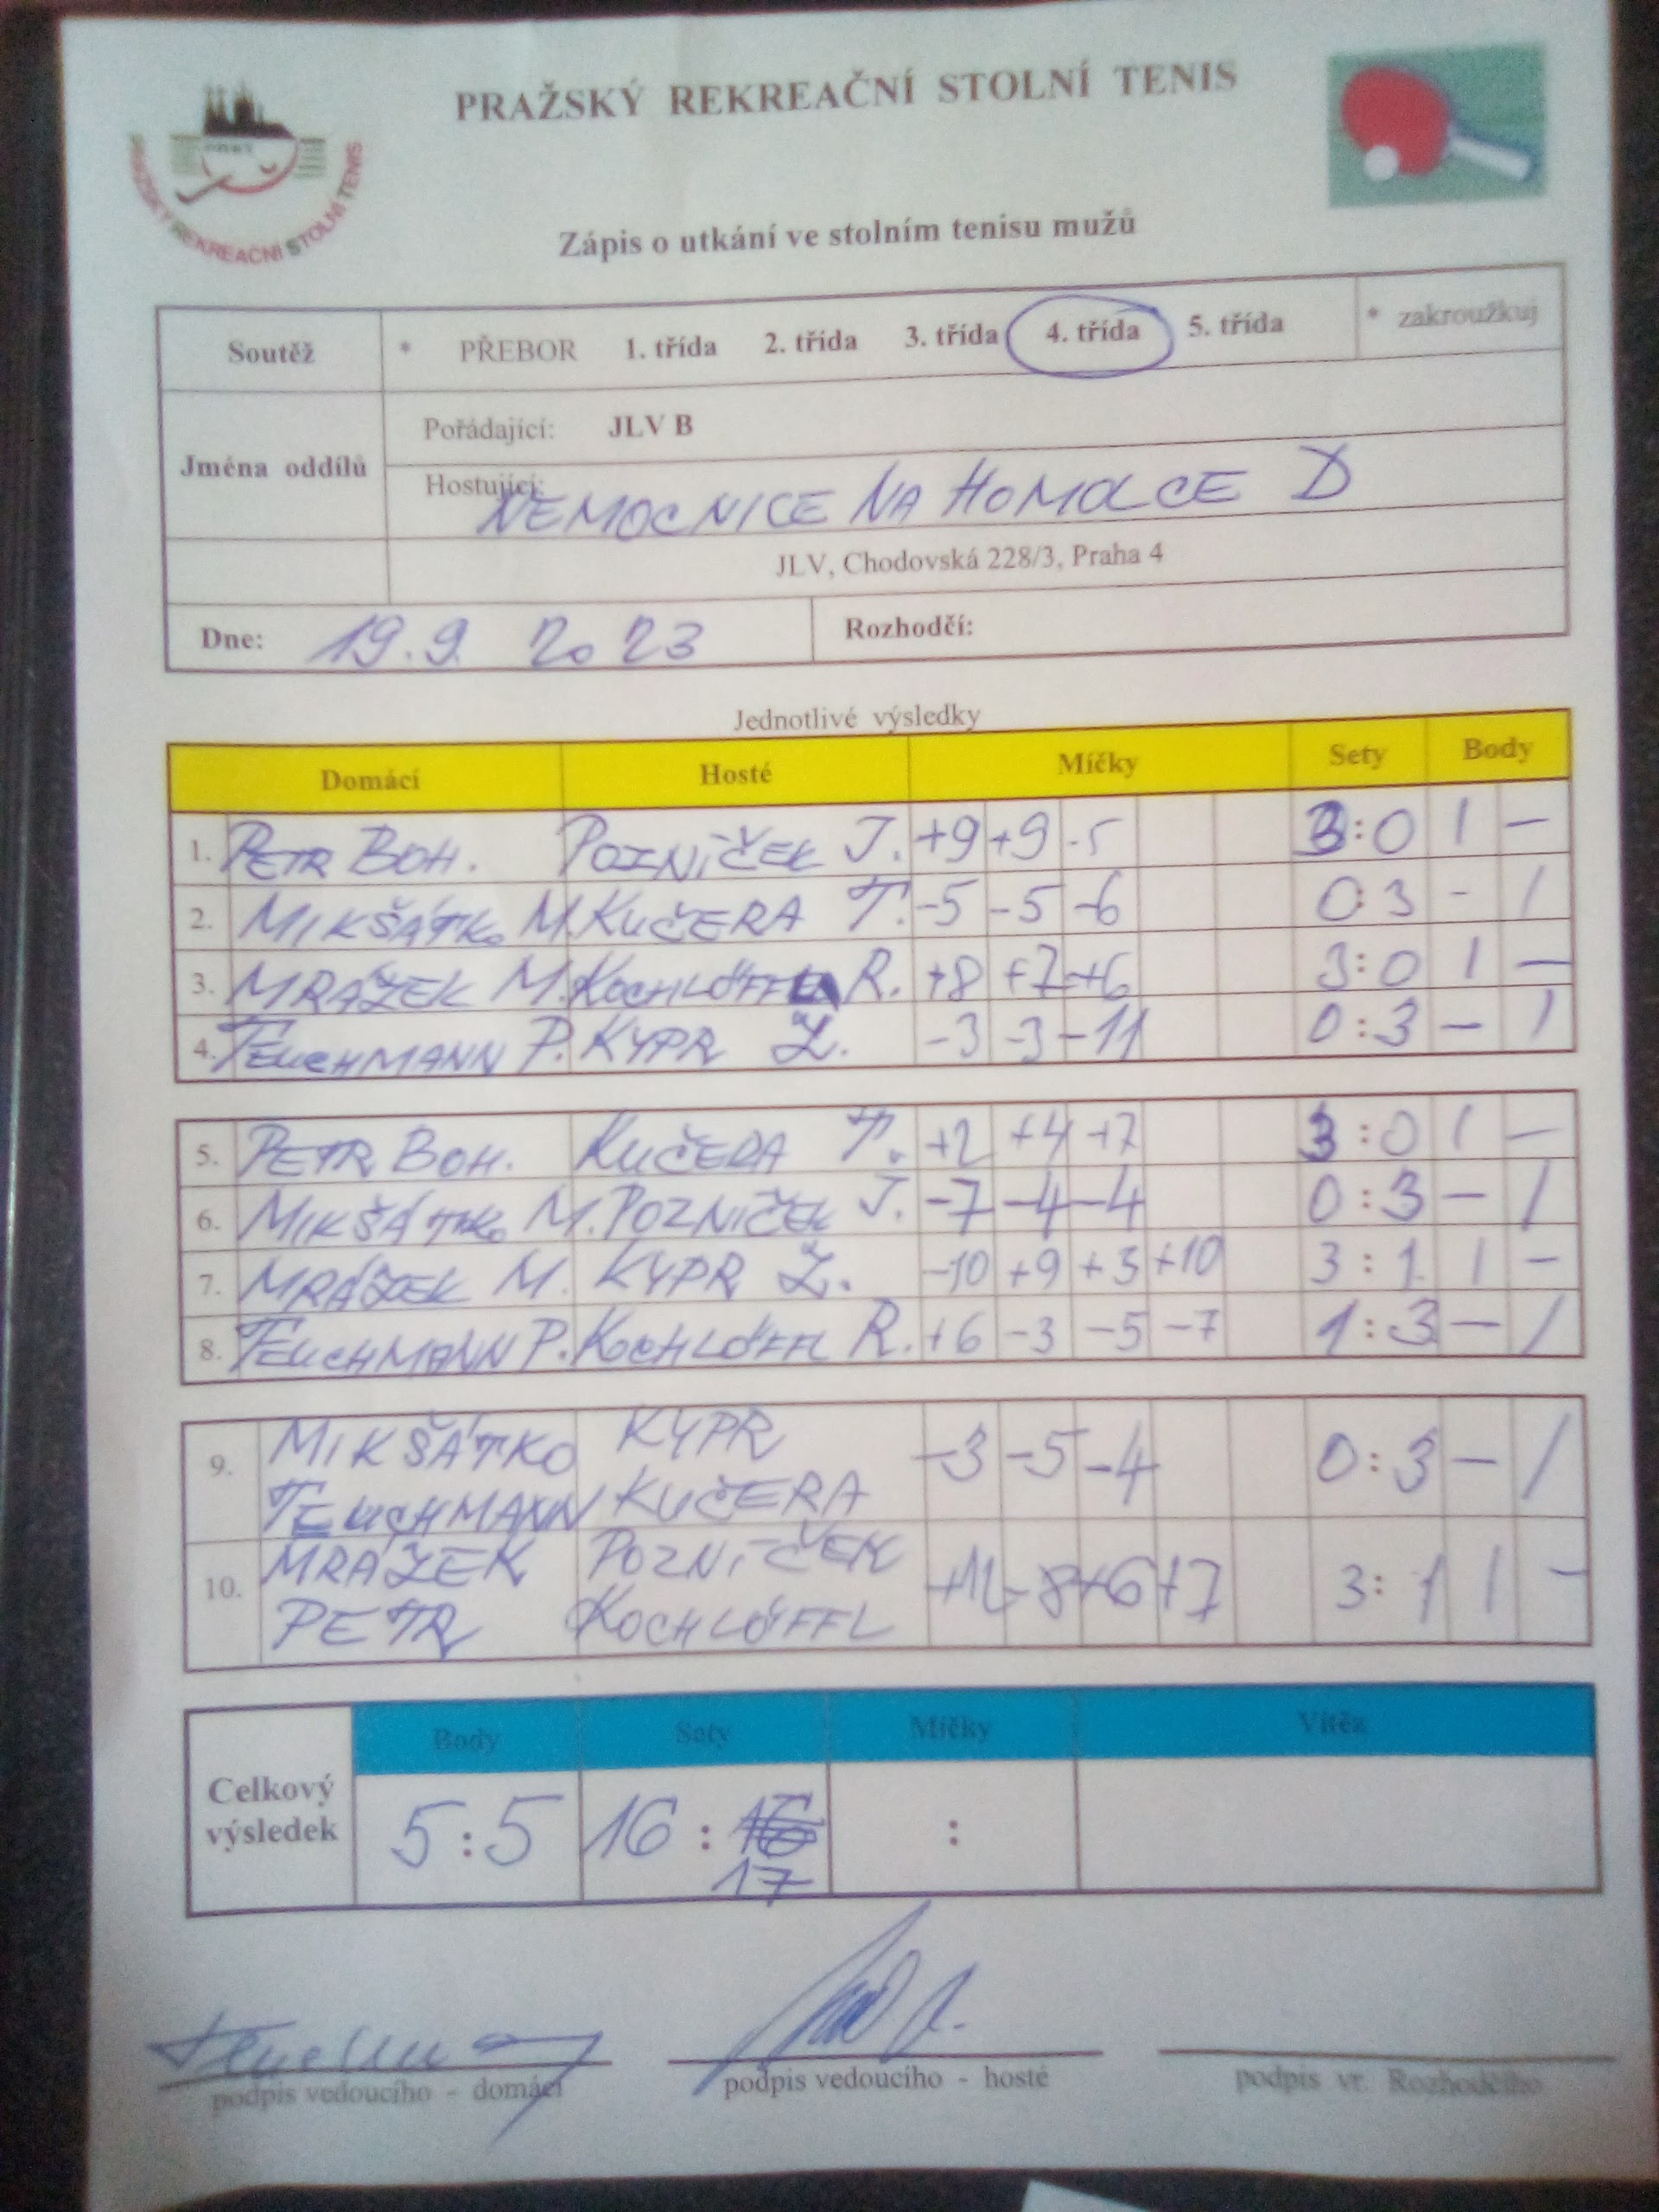 PRAŽSKÝ REKREAČNÍ STOLNÍ TENIS
PRAŽSKÝ REKREAČNÍ STOLNÍ TENIS
Zápis o utkání ve stolním tenisu mužů
Soutěž * PŘEBOR 1. třída 2. třída 3. třída 4. třída 5. třída * zakroužkuj
Jména oddílů
Pořádající: JLV B
Hostující: NEMOCNICE NA HOMOLCE D
JLV, Chodovská 228/3, Praha 4
Dne: 19.9. 2023 Rozhodčí:
Jednotlivé výsledky
Domácí Hosté Míčky Sety Body
1. PETR BOH. POZNÍČEK J. +9 +9 -5 3:0 1 –
2. MIKŠÁTKO M. KUČERA T. -5 -5 -6 0:3 - 1
3. MRÁZEK M. KOCHLÖFFL R. +8 +7 +6 3:0 1 –
4. TEUCHMANN P. KYPR Z. -3 -3 -11 0:3 – 1
5. PETR BOH. KUČERA T. +2 +4 +7 3:0 1 –
6. MIKŠÁTKO M. POZNÍČEK J. -7 -4 -4 0:3 – 1
7. MRÁZEK M. KYPR Z. -10 +9 +3 +10 3:1 1 –
8. TEUCHMANN P. KOCHLÖFFL R. +6 -3 -5 -7 1:3 – 1
9. MIKŠÁTKO KYPR -3 -5 -4 0:3 – 1
TEUCHMANN KUČERA
10. MRÁZEK POZNÍČEK +11 -8 +6 +7 3:1 1 –
PETR KOCHLÖFFL
Body Sety Míčky Vítěz
Celkový výsledek 5:5 16:16 :
17
podpis vedoucího - domácí podpis vedoucího - hosté podpis vr. Rozhodčího